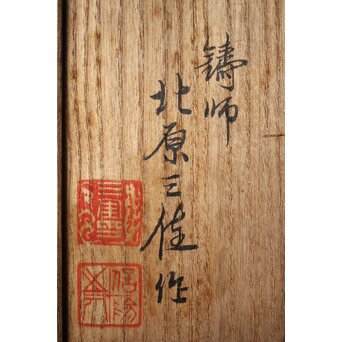 鋳師
北原三佳作